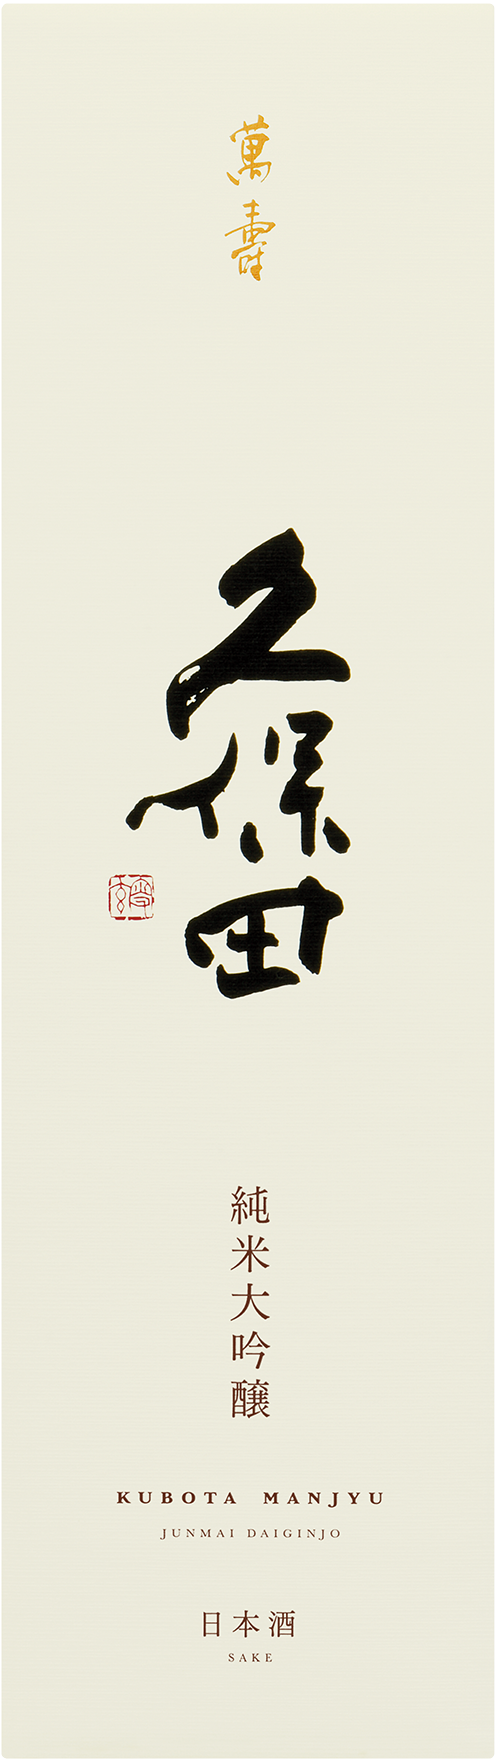 萬壽
久保田
純米大吟醸
KUBOTA MANJYU
JUNMAI DAIGINJO
日本酒
SAKE